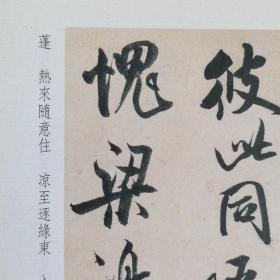 彼此同
愧梁
蓬 熱來隨意住 凉至逐緣東